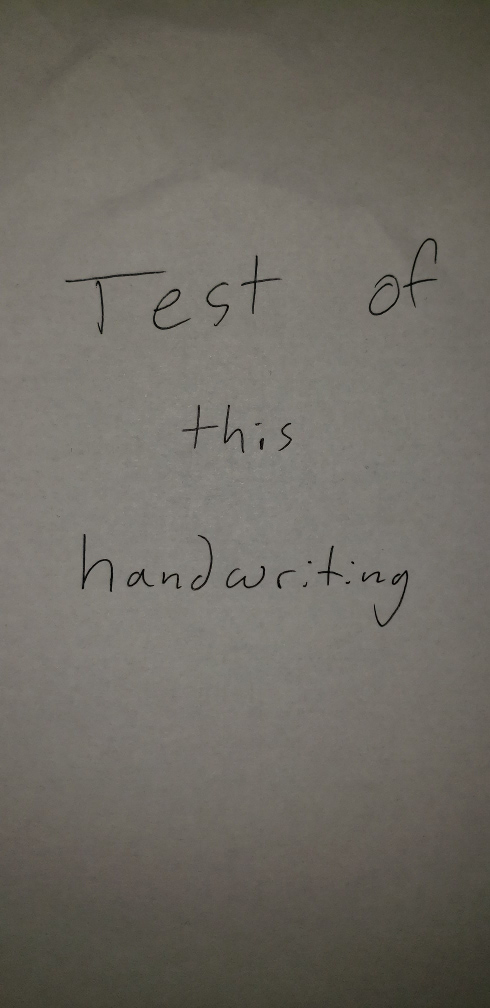 Test of
this
handwriting